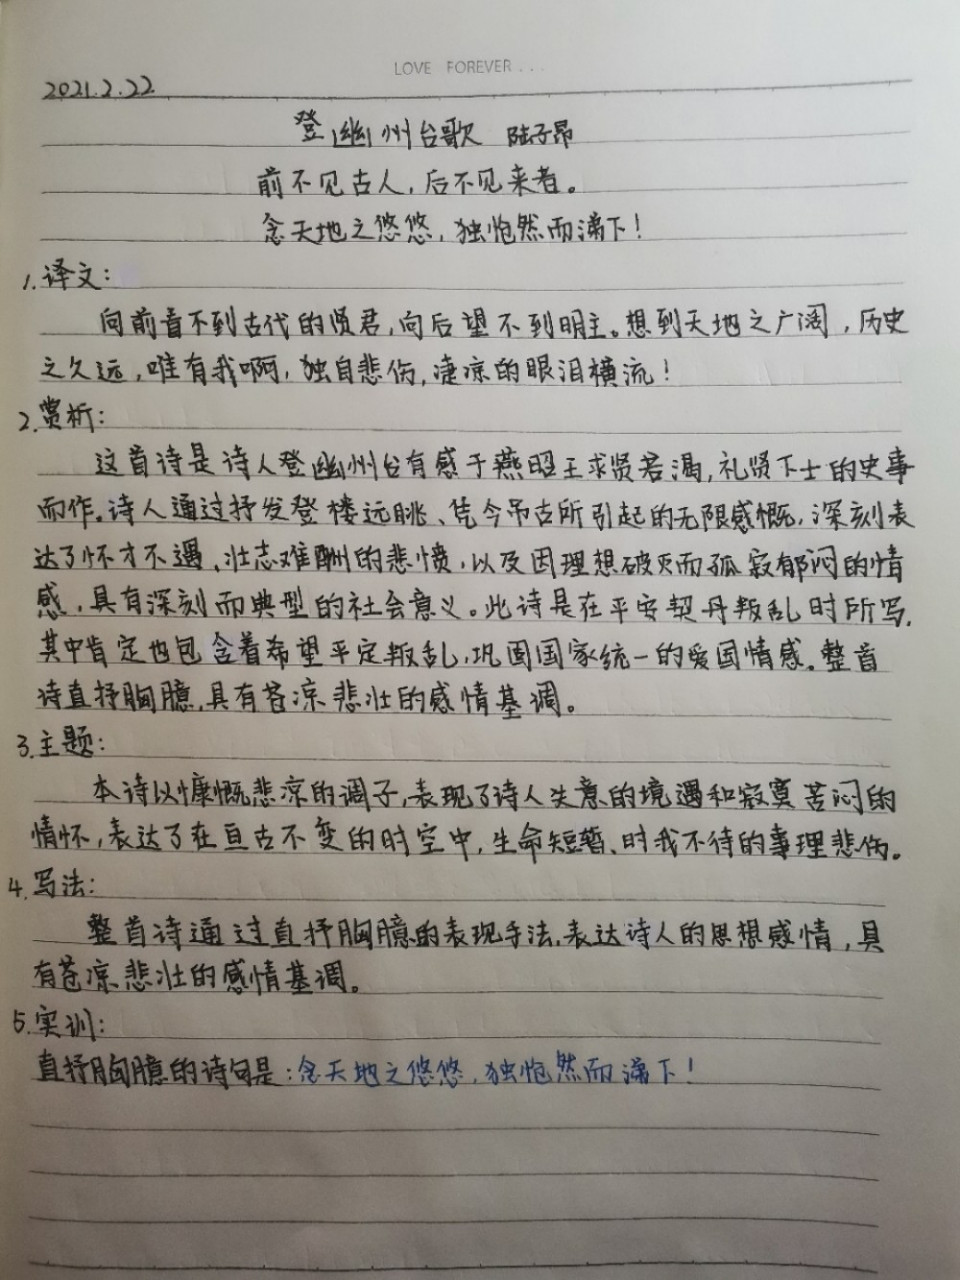 LOVE FOREVER...
2021.2.22
登幽州台歌 陆子昂
前不见古人，后不见来者。
念天地之悠悠，独怆然而涕下！
1.译文：
向前看不到古代的贤君，向后望不到明主。想到天地之广阔，历史
之久远，唯有我啊，独自悲伤，凄凉的眼泪横流！
2.赏析：
这首诗是诗人登幽州台有感于燕昭王求贤若渴，礼贤下士的史事
而作。诗人通过抒发登楼远眺、凭今吊古所引起的无限感慨，深刻表
达了怀才不遇、壮志难酬的悲愤，以及因理想破灭而孤寂郁闷的情
感，具有深刻而典型的社会意义。此诗是在平安契丹叛乱时所写，
其中肯定也包含着希望平定叛乱，巩固国家统一的爱国情感。整首
诗直抒胸臆，具有苍凉悲壮的感情基调。
3.主题：
本诗以慷慨悲凉的调子，表现了诗人失意的境遇和寂寞苦闷的
情怀，表达了在亘古不变的时空中，生命短暂、时我不待的事理悲伤。
4.写法：
整首诗通过直抒胸臆的表现手法，表达诗人的思想感情，具
有苍凉悲壮的感情基调。
5.实训：
直抒胸臆的诗句是：念天地之悠悠，独怆然而涕下！